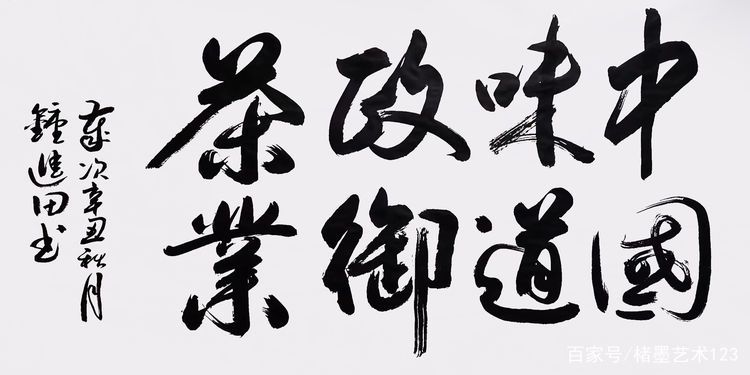 中國
味道
政御
茶業
歲次辛丑秋月
鐘進田书
百家号/楮墨艺术123